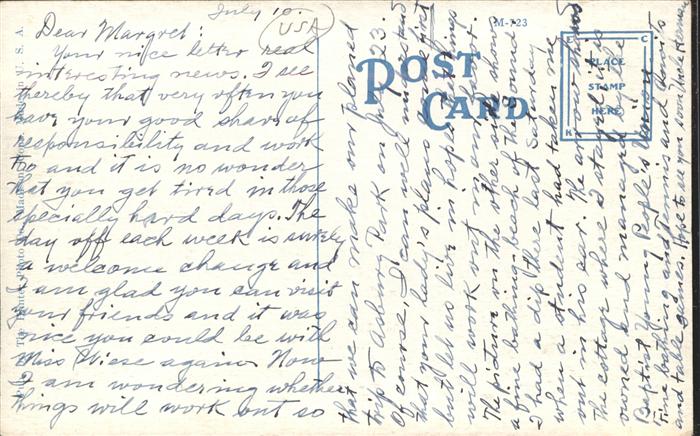 July 10.
USA
Dear Margret:
Your nice letter real
interesting news. I see
thereby that very often you
have your good share of
responsibility and work
too and it is no wonder
that you get tired in those
specially hard days. The
day off each week is surely
a welcome change and
I am glad you can visit
your friends and it was
nice you could be with
Miss Wiese again. Now
I am wondering whether
things will work out so
that we can make our planed
trip to Asbury Park on July 23.
Of course, I can well understand
that your lady's plans come first
but let us live in hopes that things
will work out in our favor.
The picture on the other side shows
a fine bathing-beach of the Sound
I had a dip there last Saturday
when a student had taken me
out in his car. The arrow shows
the cottage where I stayed. It is
owned and managed by the
Baptist Young People's Union
Fine bathing and tennis and
and table games. Hope to see you soon! Uncle Herman
M-723
POST
CARD
PLACE
STAMP
HERE